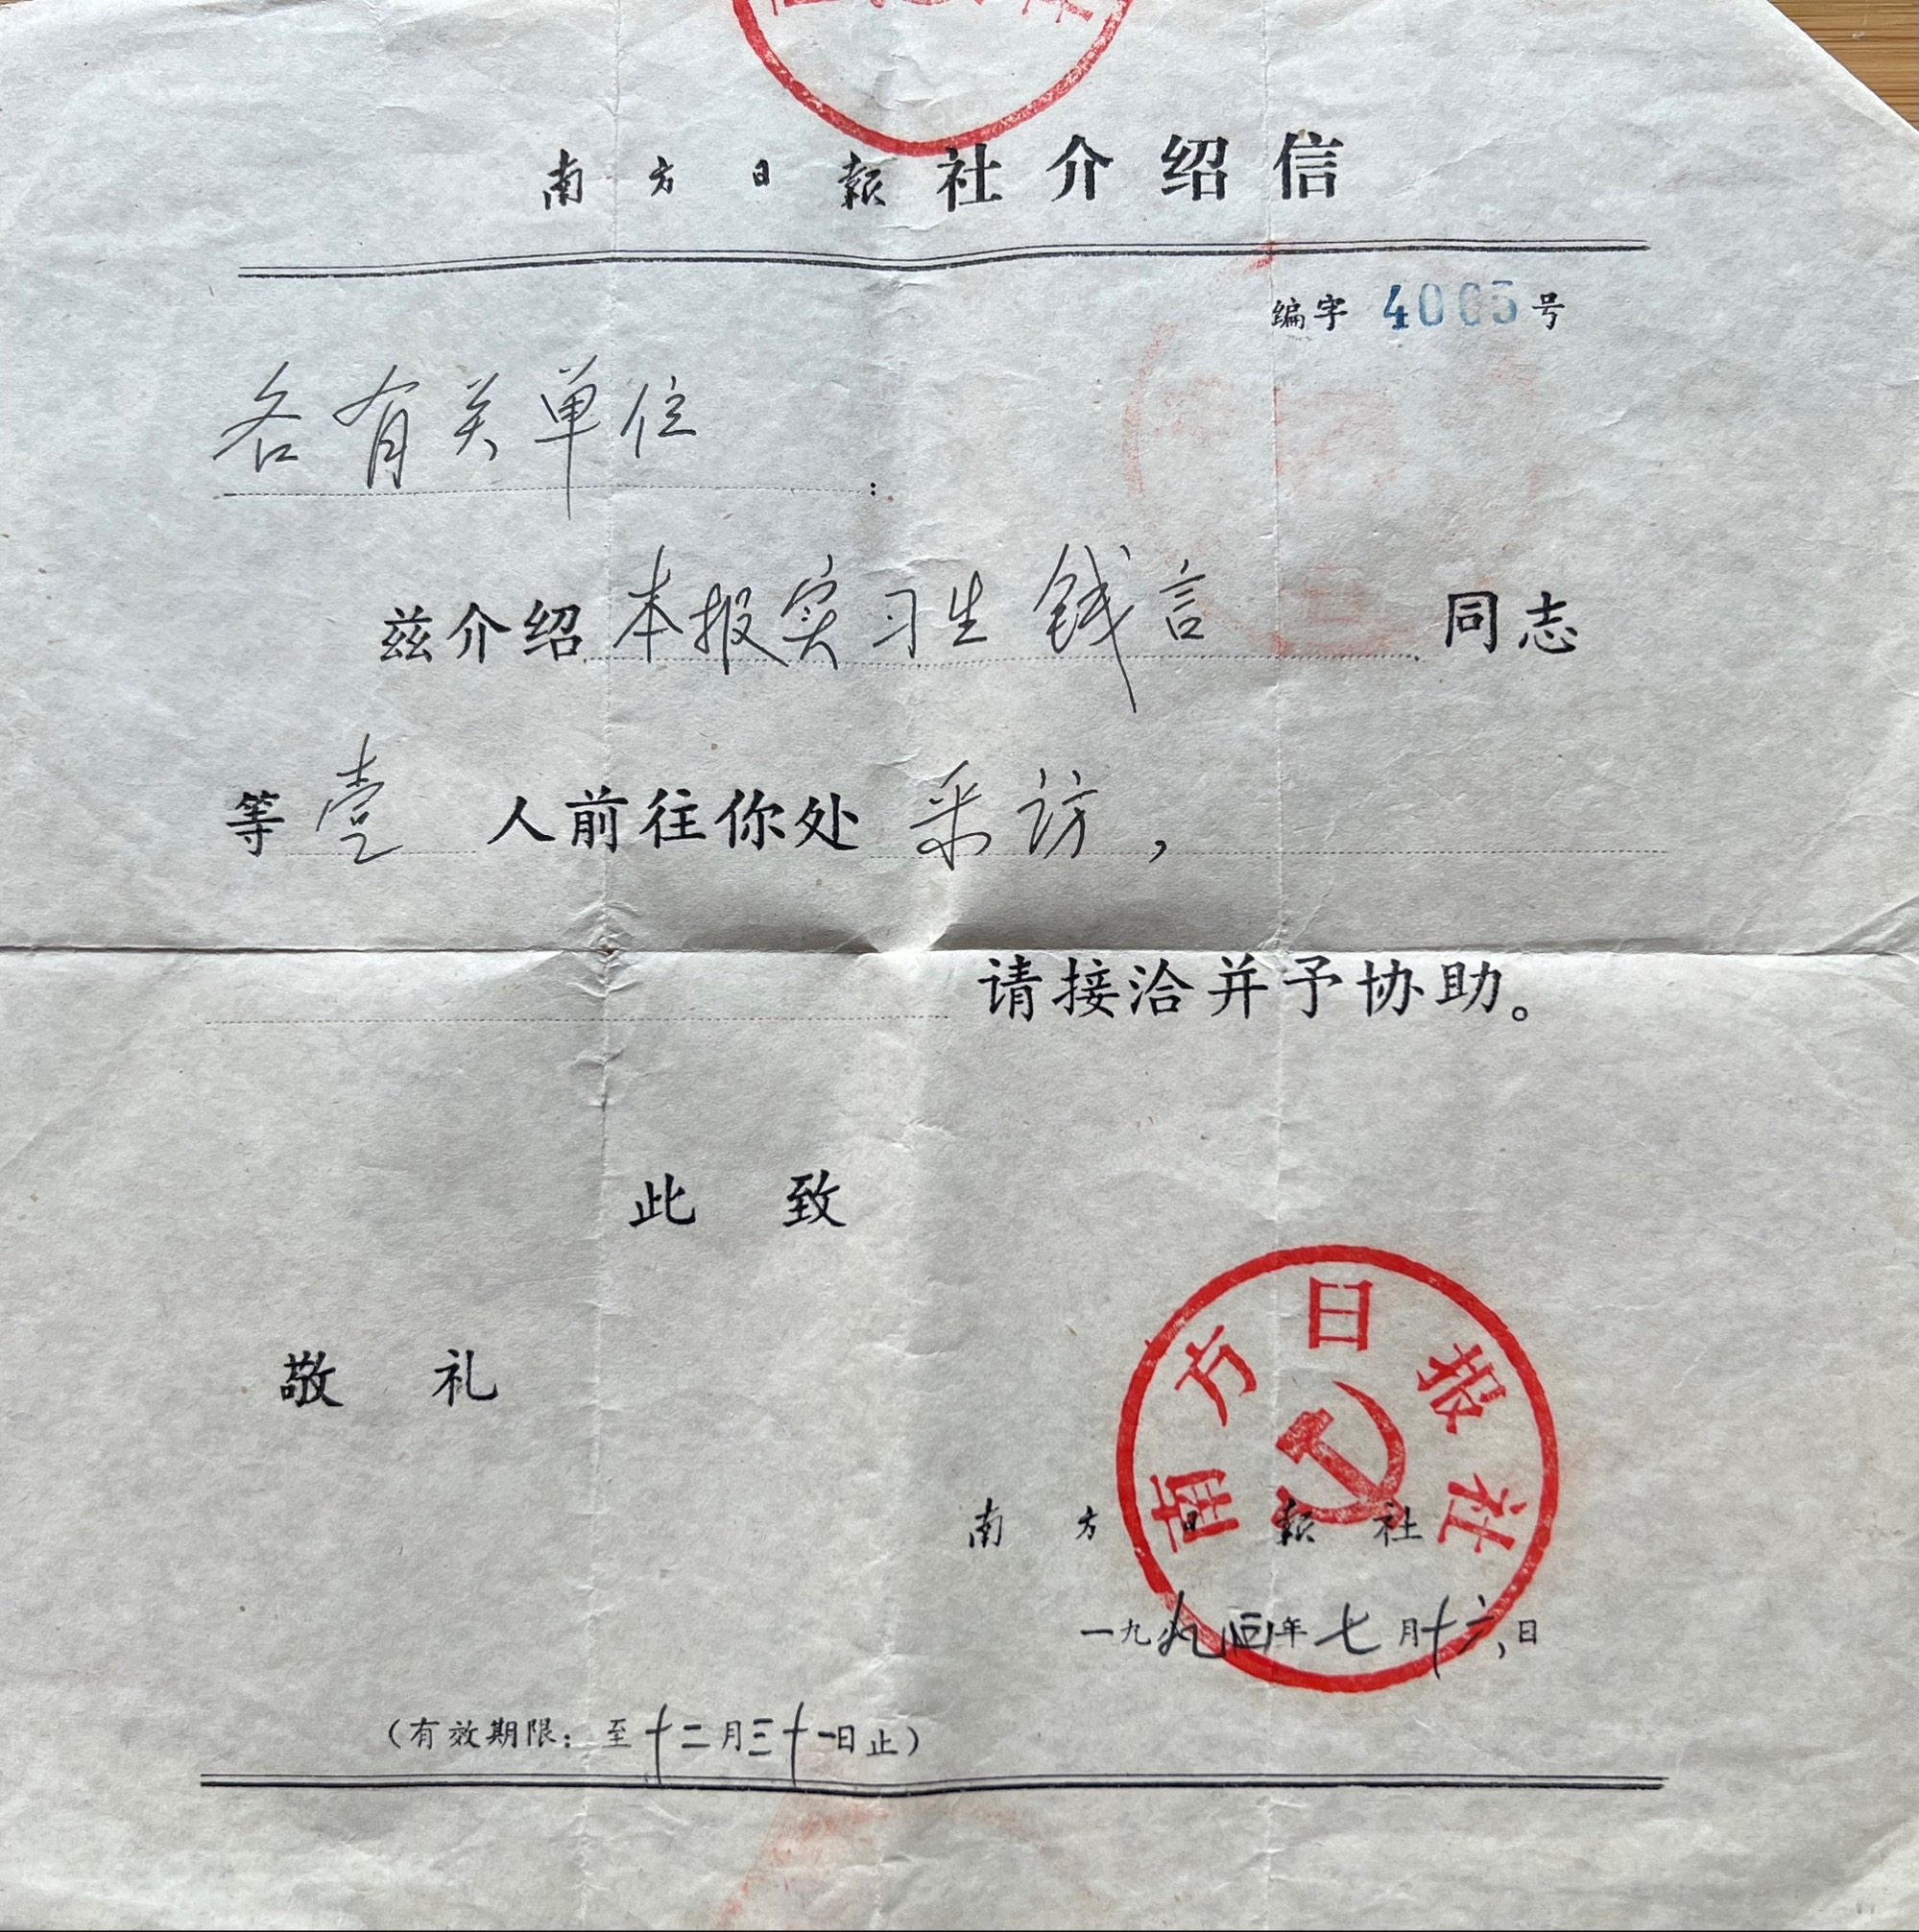 南方日報社介绍信
编字 4005号
各有关单位：
兹介绍本报实习生钱言同志
等壹人前往你处采访，
请接洽并予协助。
此致
敬礼
南方日报社
南方日報社
一九九四年七月十六日
（有效期限：至十二月三十一日止）